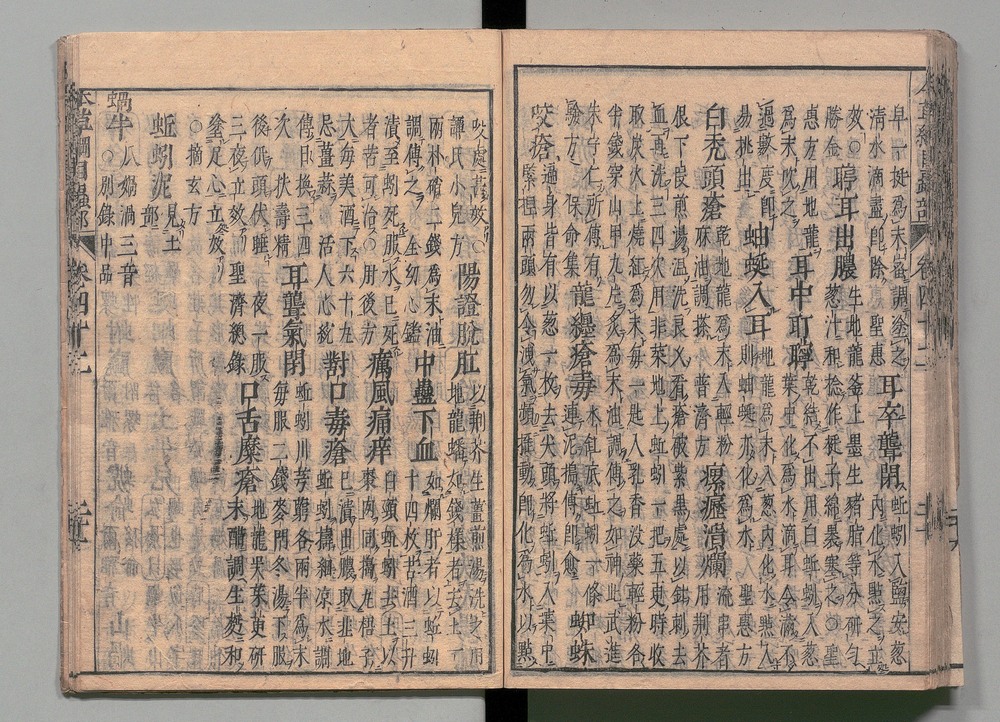 皁一挺爲末蜜調塗之
清水滴盡即除聖惠
耳卒聾閉
蚯蚓入鹽安葱
內化水點之立
效○
勝金
聤耳出膿
生地龍釜上墨生豬脂等分研勻
葱汁和捻作挺子綿裹塞之○聖
惠方用地龍
爲末吹之
耳中耵聹
乾結不出用白蚯蚓入葱
葉中化爲水滴耳令滿不
過數度即
易挑出
蚰蜒入耳
地龍爲末入葱內化水點入
則蚰蜒亦化爲水聖惠方
白禿頭瘡
乾地龍爲末入輕粉
麻油調搽 普濟方
瘰癧潰爛
流串者
用荆芥
根下段煎湯溫洗良久看瘡破紫黑處以針刺去
血再洗三四次用韭菜地上蚯蚓一把五更時收
取炭火上燒紅爲末每一匙入乳香沒藥輕粉各
半錢穿山甲九片炙爲末油調傅之如神此武進
朱守仁所傳有
驗方保命集
龍纏瘡毒
水缸底蚯蚓一條
連泥搗傅即愈
蜘蛛
咬瘡
遍身皆有以葱一枚去尖頭將蚯蚓入葉中
緊捏兩頭勿令洩氣頻搖動即化爲水以點
咬處甚效○
譚氏小兒方
陽證脫肛
以荆芥生薑煎湯洗之用
地龍蟠如錢樣者去土一
兩朴硝二錢爲末油
調傅之 全幼心鑑
中蠱下血
如爛肝者以蚯蚓
十四枚苦酒三升
漬至蚓死服水已死
者皆可治○肘後方
癘風痛痒
白頸蚯蚓去土以
棗肉同搗丸梧子
大每美酒下六十丸
忌薑蒜 活人心統
對口毒瘡
已潰出膿取韭地
蚯蚓搗細凉水調
傅日換三
次 扶壽精
耳聾氣閉
蚯蚓川芎藭各兩半爲末
每服二錢麥門冬湯下服
後低頭伏睡一夜一服
三夜立效 聖濟總錄
口舌糜瘡
地龍吳茱萸研
末醋調生麪和
塗足心立效
○摘玄方
蚯蚓泥 見土部
蝸牛
瓜媧渦三音
○別錄中品
本草綱目蟲部 卷四十二